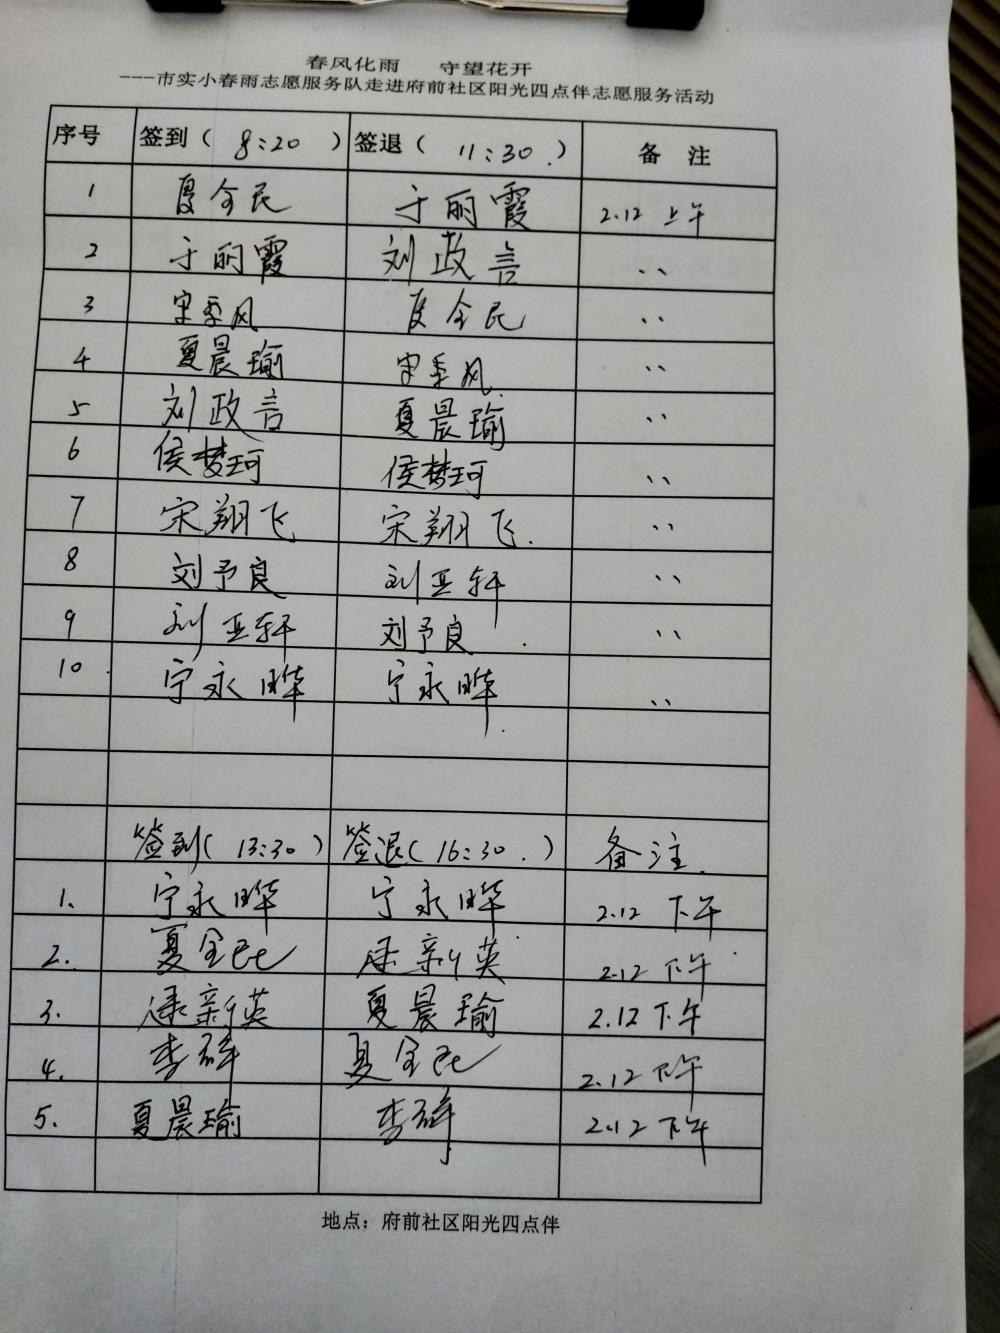 春风化雨 守望花开
---市实小春雨志愿服务队走进府前社区阳光四点伴志愿服务活动
序号 签到（ 8:20 ） 签退（ 11:30. ） 备 注
1 夏全民 于丽霞 2.12 上午
2 于丽霞 刘政言 、、
3 宋季风 夏全民 、、
4 夏晨瑜 宋季风 、、
5 刘政言 夏晨瑜 、、
6 侯梦珂 侯梦珂 、、
7 宋翔飞 宋翔飞. 、、
8 刘予良 刘亚轩 、、
9 刘亚轩 刘予良 、、
10 宁永晔 宁永晔 、、
签到( 13:30 ) 签退( 16:30. ) 备注.
1. 宁永晔 宁永晔 2.12 下午
2. 夏全民 新英 2.12 下午
3. 新英 夏晨瑜 2.12 下午
4. 李 夏全民 2.12 下午
5. 夏晨瑜 李 2.12 下午
地点：府前社区阳光四点伴